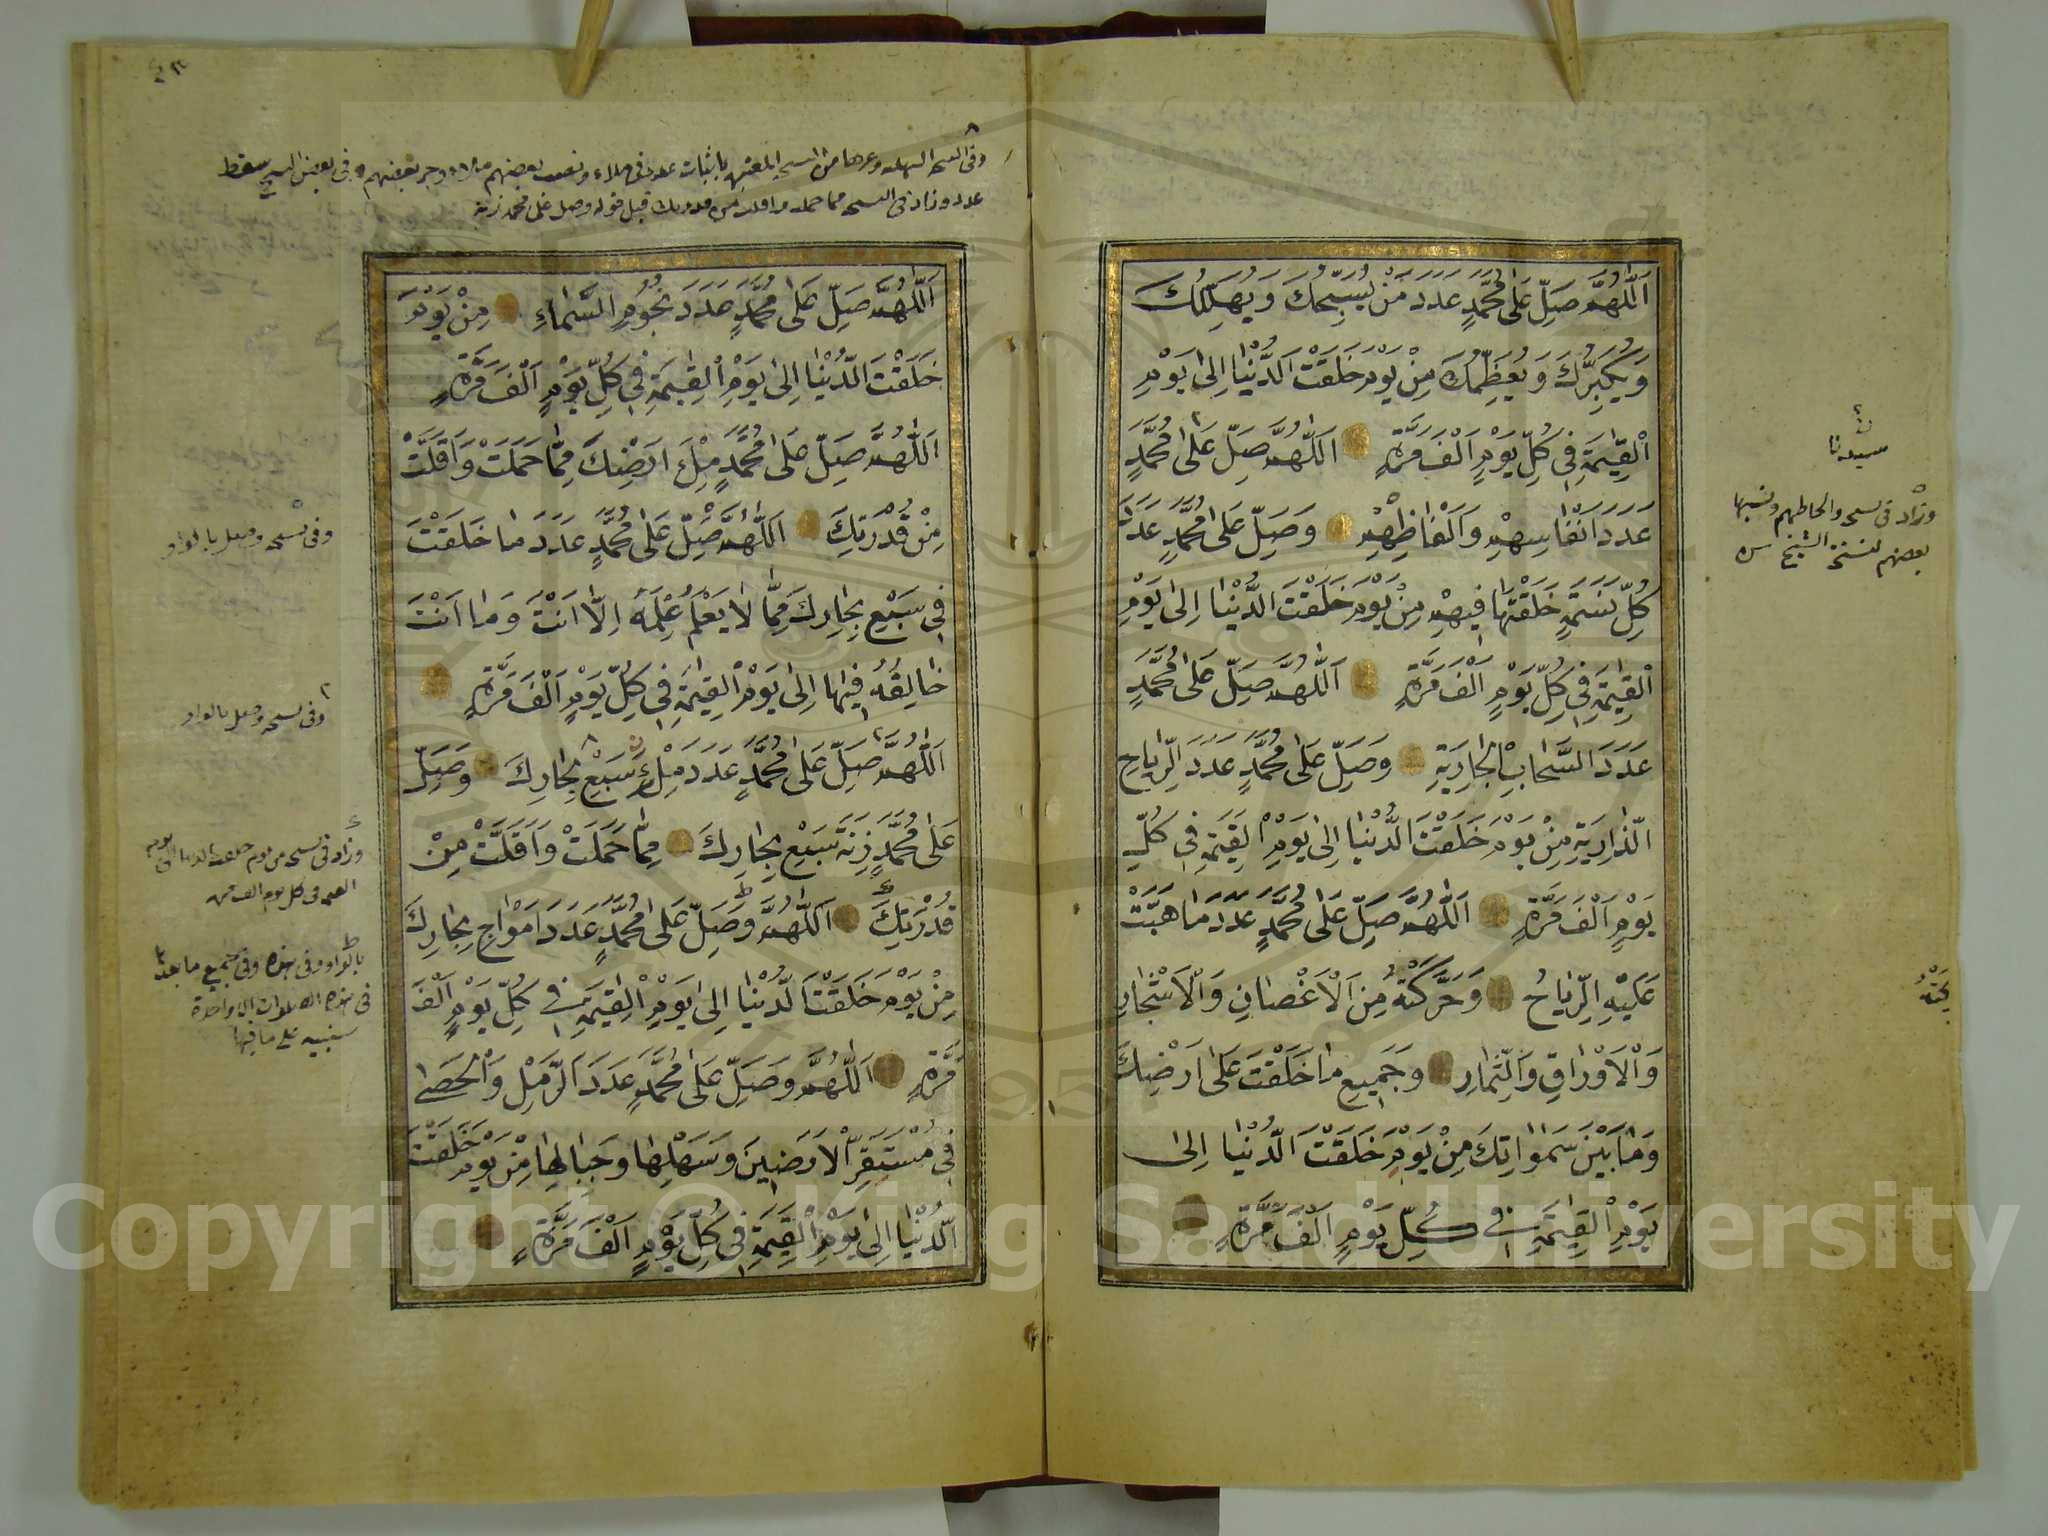 اَللّٰهُمَّ صَلِّ عَلٰى مُحَمَّدٍ عَدَدَ مَنْ يُسَبِّحُكَ وَيُهَلِّلُكَ
وَيُكَبِّرُكَ وَيُعَظِّمُكَ مِنْ يَوْمِ خَلَقْتَ الدُّنْيَا اِلٰى يَوْمِ
الْقِيٰمَةِ فِي كُلِّ يَوْمٍ اَلْفَ مَرَّةٍ اَللّٰهُمَّ صَلِّ عَلٰى مُحَمَّدٍ
عَدَدَ اَنْفَاسِهِمْ وَاَلْفَاظِهِمْ وَصَلِّ عَلٰى مُحَمَّدٍ عَدَدَ
كُلِّ نَسَمَةٍ خَلَقْتَهَا فِيهِمْ مِنْ يَوْمِ خَلَقْتَ الدُّنْيَا اِلٰى يَوْمِ
الْقِيٰمَةِ فِي كُلِّ يَوْمٍ اَلْفَ مَرَّةٍ اَللّٰهُمَّ صَلِّ عَلٰى مُحَمَّدٍ
عَدَدَ السَّحَابِ الْجَارِيَةِ وَصَلِّ عَلٰى مُحَمَّدٍ عَدَدَ الرِّيَاحِ
الذَّارِيَةِ مِنْ يَوْمِ خَلَقْتَ الدُّنْيَا اِلٰى يَوْمِ الْقِيٰمَةِ فِي كُلِّ
يَوْمٍ اَلْفَ مَرَّةٍ اَللّٰهُمَّ صَلِّ عَلٰى مُحَمَّدٍ عَدَدَ مَا هَبَّتْ
عَلَيْهِ الرِّيَاحُ وَحَرَّكَتْهُ مِنَ الْاَغْصَانِ وَالْاَشْجَارِ
وَالْاَوْرَاقِ وَالثِّمَارِ وَجَمِيعِ مَا خَلَقْتَ عَلٰى اَرْضِكَ
وَمَا بَيْنَ سَمٰوَاتِكَ مِنْ يَوْمِ خَلَقْتَ الدُّنْيَا اِلٰى
يَوْمِ الْقِيٰمَةِ فِي كُلِّ يَوْمٍ اَلْفَ مَرَّةٍ
سيدنا
وزاد فى نسخه والحاظهم ونسبها
بعضهم لنسخة الشيخ
اَللّٰهُمَّ صَلِّ عَلٰى مُحَمَّدٍ عَدَدَ نُجُومِ السَّمَاءِ مِنْ يَوْمِ
خَلَقْتَ الدُّنْيَا اِلٰى يَوْمِ الْقِيٰمَةِ فِي كُلِّ يَوْمٍ اَلْفَ مَرَّةٍ
اَللّٰهُمَّ صَلِّ عَلٰى مُحَمَّدٍ مِلْءَ اَرْضِكَ مِمَّا حَمَلَتْ وَاَقَلَّتْ
مِنْ قُدْرَتِكَ اَللّٰهُمَّ صَلِّ عَلٰى مُحَمَّدٍ عَدَدَ مَا خَلَقْتَ
فِي سَبْعِ بِحَارِكَ مِمَّا لَا يَعْلَمُ عِلْمَهُ اِلَّا اَنْتَ وَمَا اَنْتَ
خَالِقُهُ فِيهَا اِلٰى يَوْمِ الْقِيٰمَةِ فِي كُلِّ يَوْمٍ اَلْفَ مَرَّةٍ
اَللّٰهُمَّ صَلِّ عَلٰى مُحَمَّدٍ عَدَدَ مِلْءِ سَبْعِ بِحَارِكَ وَصَلِّ
عَلٰى مُحَمَّدٍ زِنَةَ سَبْعِ بِحَارِكَ مِمَّا حَمَلَتْ وَاَقَلَّتْ مِنْ
قُدْرَتِكَ اَللّٰهُمَّ وَصَلِّ عَلٰى مُحَمَّدٍ عَدَدَ اَمْوَاجِ بِحَارِكَ
مِنْ يَوْمِ خَلَقْتَ الدُّنْيَا اِلٰى يَوْمِ الْقِيٰمَةِ فِي كُلِّ يَوْمٍ اَلْفَ
مَرَّةٍ اَللّٰهُمَّ وَصَلِّ عَلٰى مُحَمَّدٍ عَدَدَ الرَّمْلِ وَالْحَصٰى
فِي مُسْتَقَرِّ الْاَرَضِينَ وَسَهْلِهَا وَجِبَالِهَا مِنْ يَوْمِ خَلَقْتَ
الدُّنْيَا اِلٰى يَوْمِ الْقِيٰمَةِ فِي كُلِّ يَوْمٍ اَلْفَ مَرَّةٍ
وفى نسخه وصل بالواو
وفى نسخه وصل بالواو
وزاد فى نسخه من يوم خلقت الدنيا الى يوم
القيمه فى كل يوم الف مره
بالواو وفى هذه وفى جميع ما بعده
فى هذه الصلوات الا واحدة
سننبه على ما فيها
Copyright © King Saud University